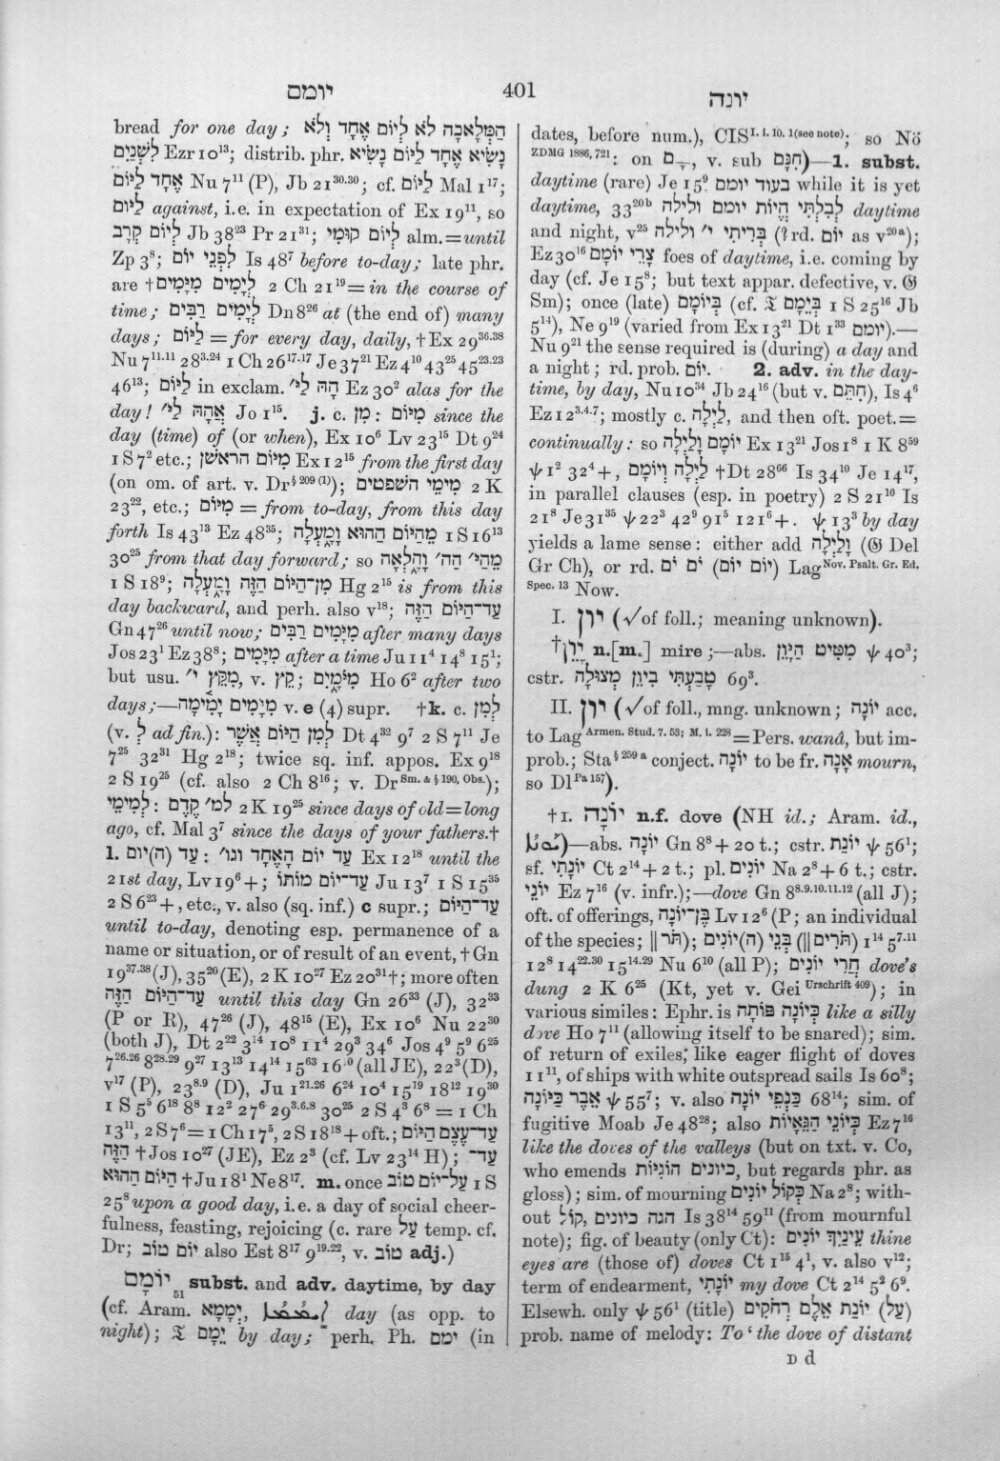 יומם
401
יונה
bread for one day; הַמְּלָאכָה לֹא לְיוֹם אֶחָד וְלֹא
לִשְׁנַיִם Ezr 10¹³; distrib. phr. נָשִׂיא אֶחָד לַיּוֹם נָשִׂיא
אֶחָד לַיּוֹם Nu 7¹¹ (P), Jb 21³⁰·³⁰; cf. לַיּוֹם Mal 1¹⁷;
לַיּוֹם against, i.e. in expectation of Ex 19¹¹, so
לְיוֹם קְרָב Jb 38²³ Pr 21³¹; לְיוֹם קוּמִי alm.=until
Zp 3⁸; לִפְנֵי יוֹם Is 48⁷ before to-day; late phr.
are †לְיָמִים מִיָּמִים 2 Ch 21¹⁹=in the course of
time; לְיָמִים רַבִּים Dn 8²⁶ at (the end of) many
days; לַיּוֹם = for every day, daily, †Ex 29³⁶·³⁸
Nu 7¹¹·¹¹ 28³·²⁴ 1 Ch 26¹⁷·¹⁷ Je 37²¹ Ez 4¹⁰ 43²⁵ 45²³·²³
46¹³; לַיּוֹם in exclam. הָהּ לַי׳ Ez 30² alas for the
day! אֲהָהּ לַי׳ Jo 1¹⁵. j. c. מִן: מִיּוֹם since the
day (time) of (or when), Ex 10⁶ Lv 23¹⁵ Dt 9²⁴
1 S 7² etc.; מִיּוֹם הראשׁון Ex 12¹⁵ from the first day
(on om. of art. v. Dr§ 209 (1)); מִימֵי השׁפטים 2 K
23²², etc.; מִיּוֹם = from to-day, from this day
forth Is 43¹³ Ez 48³⁵; מֵהַיּוֹם הַהוּא וָמָעְלָה 1 S 16¹³
30²⁵ from that day forward; so מֵהַי׳ הַה׳ וָהָלְאָה
1 S 18⁹; מִן־הַיּוֹם הַזֶּה וָמָעְלָה Hg 2¹⁵ is from this
day backward, and perh. also v¹⁸; עַד־הַיּוֹם הַזֶּה
Gn 47²⁶ until now; מִיָּמִים רַבִּים after many days
Jos 23¹ Ez 38⁸; מִיָּמִים after a time Ju 11⁴ 14⁸ 15¹;
but usu. מִקֵּץ י׳, v. קֵץ; מִיֹּמָיִם Ho 6² after two
days;—מִיָּמִים יָמִימָה v. e (4) supr. †k. c. לְמִן
(v. לְ ad fin.): לְמִן הַיּוֹם אֲשֶׁר Dt 4³² 9⁷ 2 S 7¹¹ Je
7²⁵ 32³¹ Hg 2¹⁸; twice sq. inf. appos. Ex 9¹⁸
2 S 19²⁵ (cf. also 2 Ch 8¹⁶; v. Dr Sm. & § 190, Obs.);
לְמִימֵי: למ׳ קֶדֶם 2 K 19²⁵ since days of old=long
ago, cf. Mal 3⁷ since the days of your fathers.†
l. עַד (ה)יום: עַד יוֹם הָאֶחָד וגו׳ Ex 12¹⁸ until the
21st day, Lv 19⁶+; עַד־יוֹם מוֹתוֹ Ju 13⁷ 1 S 15³⁵
2 S 6²³+, etc., v. also (sq. inf.) c supr.; עַד־הַיּוֹם
until to-day, denoting esp. permanence of a
name or situation, or of result of an event, †Gn
19³⁷·³⁸ (J), 35²⁰ (E), 2 K 10²⁷ Ez 20³¹†; more often
עַד־הַיּוֹם הַזֶּה until this day Gn 26³³ (J), 32³³
(P or R), 47²⁶ (J), 48¹⁵ (E), Ex 10⁶ Nu 22³⁰
(both J), Dt 2²² 3¹⁴ 10⁸ 11⁴ 29³ 34⁶ Jos 4⁹ 5⁹ 6²⁵
7²⁶·²⁶ 8²⁸·²⁹ 9²⁷ 13¹³ 14¹⁴ 15⁶³ 16¹⁰ (all JE), 22³ (D),
v¹⁷ (P), 23⁸·⁹ (D), Ju 1²¹·²⁶ 6²⁴ 10⁴ 15¹⁹ 18¹² 19³⁰
1 S 5⁵ 6¹⁸ 8⁸ 12² 27⁶ 29³·⁶·⁸ 30²⁵ 2 S 4³ 6⁸ = 1 Ch
13¹¹, 2 S 7⁶=1 Ch 17⁵, 2 S 18¹⁸+oft.; עַד־עֶצֶם הַיּוֹם
הַזֶּה †Jos 10²⁷ (JE), Ez 2³ (cf. Lv 23¹⁴ H); עַד־
הַיּוֹם הַהוּא †Ju 18¹ Ne 8¹⁷. m. once עַל־יוֹם טוֹב 1 S
25⁸ upon a good day, i.e. a day of social cheer-
fulness, feasting, rejoicing (c. rare עַל temp. cf.
Dr; יוֹם טוֹב also Est 8¹⁷ 9¹⁹·²², v. טוֹב adj.)
יוֹמָם 51 subst. and adv. daytime, by day
(cf. Aram. יְמָמָא, day (as opp. to
night); 𝔗 יֵמָם by day; perh. Ph. ימם (in
dates, before num.), CIS I. i. 10. 1 (see note); so Nö
ZDMG 1886, 721: on ־ָם, v. sub חִנָּם)—1. subst.
daytime (rare) Je 15⁹ בעוד יומם while it is yet
daytime, 33²⁰ᵇ לְבִלְתִּי הֱיוֹת יומם ולילה daytime
and night, v²⁵ בְּרִיתִי י׳ ולילה (? rd. יוֹם as v²⁰ᵃ);
Ez 30¹⁶ צָרֵי יוֹמָם foes of daytime, i.e. coming by
day (cf. Je 15⁸; but text appar. defective, v. 𝔊
Sm); once (late) בְּיוֹמָם (cf. 𝔗 בִּימָם 1 S 25¹⁶ Jb
5¹⁴), Ne 9¹⁹ (varied from Ex 13²¹ Dt 1³³ יומם).—
Nu 9²¹ the sense required is (during) a day and
a night; rd. prob. יוֹם. 2. adv. in the day-
time, by day, Nu 10³⁴ Jb 24¹⁶ (but v. חָתַם), Is 4⁶
Ez 12³·⁴·⁷; mostly c. לַיְלָה, and then oft. poet.=
continually: so יוֹמָם וָלַיְלָה Ex 13²¹ Jos 1⁸ 1 K 8⁵⁹
ψ 1² 32⁴+, לַיְלָה וְיוֹמָם †Dt 28⁶⁶ Is 34¹⁰ Je 14¹⁷,
in parallel clauses (esp. in poetry) 2 S 21¹⁰ Is
21⁸ Je 31³⁵ ψ 22³ 42⁹ 91⁵ 121⁶+. ψ 13³ by day
yields a lame sense: either add וָלַיְלָה (𝔊 Del
Gr Ch), or rd. יוֹם יוֹם (יֹם יֹם) Lag Nov. Psalt. Gr. Ed,
Spec. 13 Now.
I. יון (√ of foll.; meaning unknown).
†יָוֵן n.[m.] mire;—abs. מִטִּיט הַיָּוֵן ψ 40³;
cstr. טָבַעְתִּי בִּיוֵן מְצוּלָה 69³.
II. יון (√ of foll., mng. unknown; יוֹנָה acc.
to Lag Armen. Stud. 7. 53; M. i. 228=Pers. waná, but im-
prob.; Sta § 259 a conject. יוֹנָה to be fr. אָנָה mourn,
so Dl Pa 157).
†I. יוֹנָה n.f. dove (NH id.; Aram. id.,
)—abs. יוֹנָה Gn 8⁸+20 t.; cstr. יוֹנַת ψ 56¹;
sf. יוֹנָתִי Ct 2¹⁴+2 t.; pl. יוֹנִים Na 2⁸+6 t.; cstr.
יוֹנֵי Ez 7¹⁶ (v. infr.);—dove Gn 8⁸·⁹·¹⁰·¹¹·¹² (all J);
oft. of offerings, בֶּן־יוֹנָה Lv 12⁶ (P; an individual
of the species; ‖ תֹּר); בְּנֵי (ה)יוֹנִים (‖ תֹּרִים) 1¹⁴ 5⁷·¹¹
12⁸ 14²²·³⁰ 15¹⁴·²⁹ Nu 6¹⁰ (all P); חֲרֵי יוֹנִים dove's
dung 2 K 6²⁵ (Kt, yet v. Gei Urschrift 409); in
various similes: Ephr. is כְּיוֹנָה פוֹתָה like a silly
dove Ho 7¹¹ (allowing itself to be snared); sim.
of return of exiles, like eager flight of doves
11¹¹, of ships with white outspread sails Is 60⁸;
אֵבֶר כַּיּוֹנָה ψ 55⁷; v. also כַּנְפֵי יוֹנָה 68¹⁴; sim. of
fugitive Moab Je 48²⁸; also כְּיוֹנֵי הַגֵּאָיוֹת Ez 7¹⁶
like the doves of the valleys (but on txt. v. Co,
who emends כיונים הוֹגִיּוֹת, but regards phr. as
gloss); sim. of mourning כְּקוֹל יוֹנִים Na 2⁸; with-
out קוֹל, הגה כיונים Is 38¹⁴ 59¹¹ (from mournful
note); fig. of beauty (only Ct): עֵינַיִךְ יוֹנִים thine
eyes are (those of) doves Ct 1¹⁵ 4¹, v. also v¹²;
term of endearment, יוֹנָתִי my dove Ct 2¹⁴ 5² 6⁹.
Elsewh. only ψ 56¹ (title) (עַל) יוֹנַת אֵלֶם רְחֹקִים
prob. name of melody: To 'the dove of distant
D d